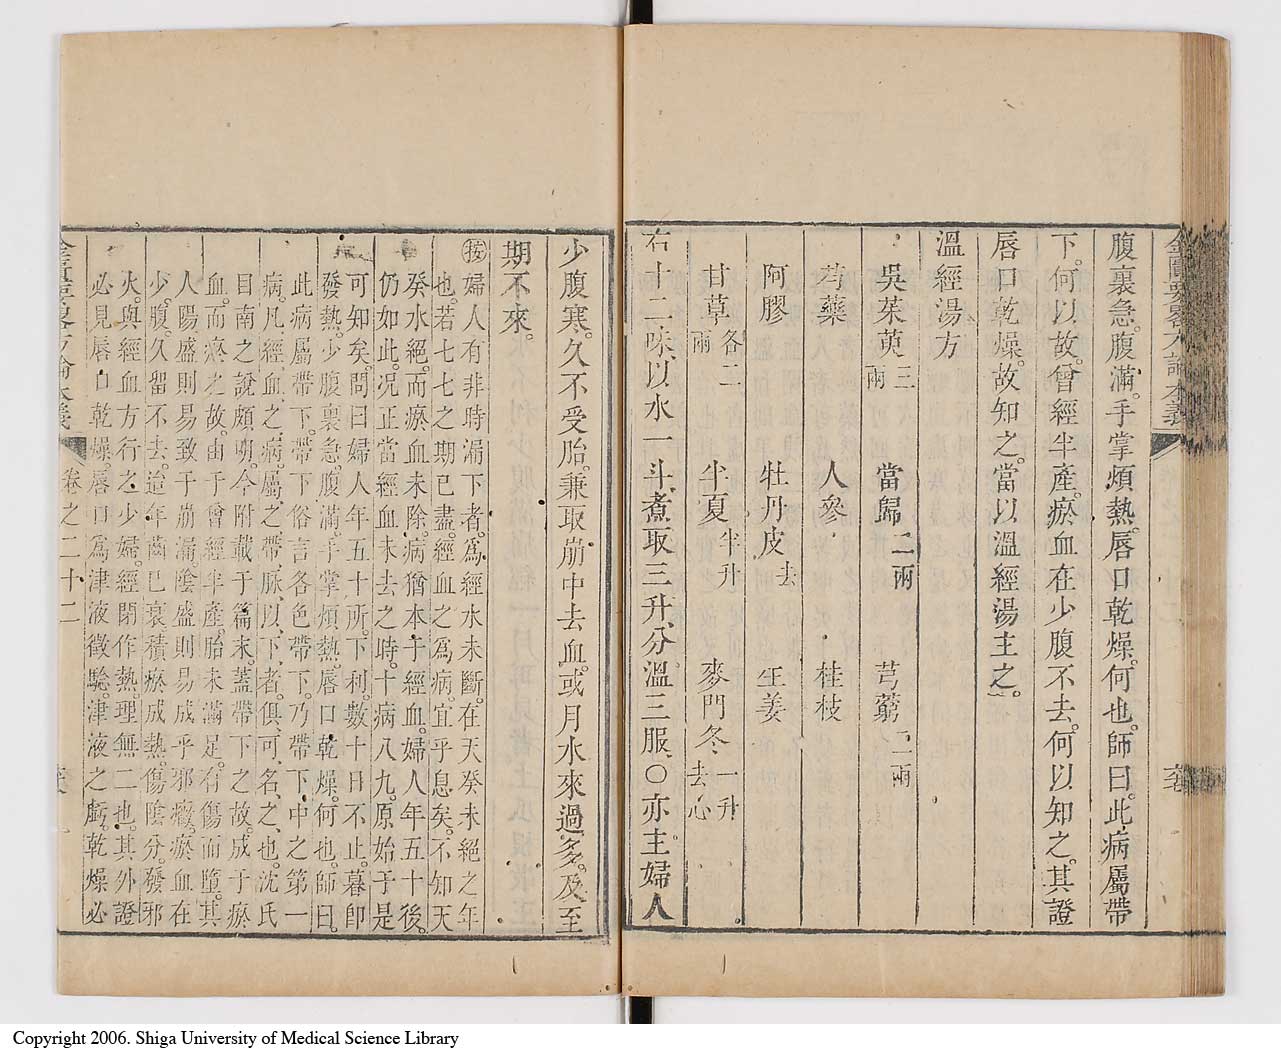 金匱要略方論本義
腹裏急腹滿手掌煩熱唇口乾燥何也師曰此病屬帶
下何以故曾經半產瘀血在少腹不去何以知之其證
唇口乾燥故知之當以溫經湯主之
溫經湯方
吳茱萸三兩 當歸二兩 芎藭二兩
芍藥 人參 桂枝
阿膠 牡丹皮去 生姜
甘草各二兩 半夏半升 麥門冬一升去心
右十二味以水一斗煮取三升分溫三服〇亦主婦人
少腹寒久不受胎兼取崩中去血或月水來過多及至
期不來
按婦人有非時漏下者爲經水未斷在天癸未絕之年
也若七七之期已盡經血之爲病宜乎息矣不知天
癸水絕而瘀血未除病猶本于經血婦人年五十後
仍如此况正當經血未去之時十病八九原始于是
可知矣問曰婦人年五十所下利數十日不止暮卽
發熱少腹裏急腹滿手掌煩熱唇口乾燥何也師曰
此病屬帶下帶下俗言各色帶下乃帶下中之第一
病凡經血之病屬之帶脉以下者俱可名之也沈氏
目南之說頗明今附載于篇末蓋帶下之故成于瘀
血而瘀之故由于曾經半產胎未滿足有傷而墮其
人陽盛則易致于崩漏陰盛則易成乎邪癥瘀血在
少腹久留不去迨年齒已衰積瘀成熱傷陰分發邪
火與經血方行之少婦經閉作熱理無二也其外證
必見唇口乾燥唇口爲津液徵驗津液之虧乾燥必
金匱要略方論本義 卷之二十二